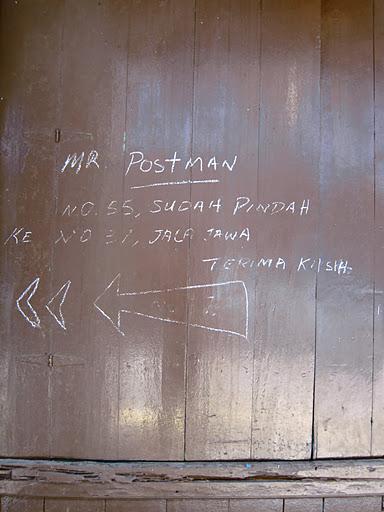 MR. POSTMAN
NO. 55, SUDAH PINDAH
KE NO 31, JALA JAWA
TERIMA KASIH